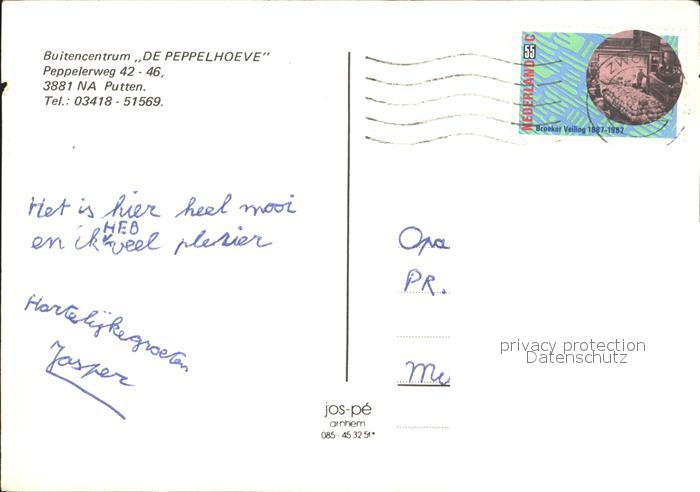 Buitencentrum „DE PEPPELHOEVE"
Peppelerweg 42 - 46,
3881 NA Putten.
Tel.: 03418 - 51569.
NEDERLAND
55 C
ZWO
Broeker Veiling 1887-1987
Het is hier heel mooi
HEB
en ik veel plezier
Hartelijke groeten
Jasper
Opa
PR.
privacy protection
Datenschutz
jos-pé
arnhem
085 - 45 32 51*